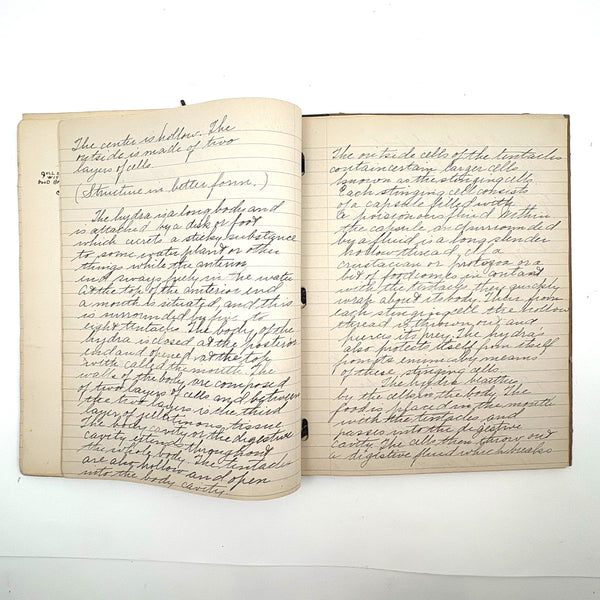 The center is hollow. The
outside is made of two
layers of cells.
(Structure in better form.)
The hydra is a long body and
is attached by a disk or foot
which secrets a sticky substance
to some water plant or other
things while the anterior
end sways freely in the water
At the top of the anterior end
a mouth is situated, and this
is surrounded by five to
eight tentacles. The body of the
hydra is closed at the posterior
end and opened at the top
with called the mouth. The
walls of the body are composed
of two layers of cells and between
the two layers is the third
layer of gelatinous tissue.
The body cavity or the digestive
cavity extends throughout
the whole body. The tentacles
are also hollow and open
into the body cavity.
The outside cells of the tentacles
contain certain larger cells
known as the stinging cells.
Each stinging cell consists
of a capsule filled with
a poisonous fluid. Within
the capsule, and surrounded
by a fluid is a long slender
hollow thread; if a
crustacean or protozoa or a
bit of food comes in contact
with the tentacles they quickly
wrap about its body. Then from
each stinging cell the hollow
thread is thrown out and
pierces its prey. The hydra
also protects itself from itself
from its enemies by means
of these stinging cells.
The hydra breathes
by the cells on the body. The
food is placed in the mouth
with the tentacles and
passes into the digestive
cavity. The cells then throw out
a digestive fluid which breaks